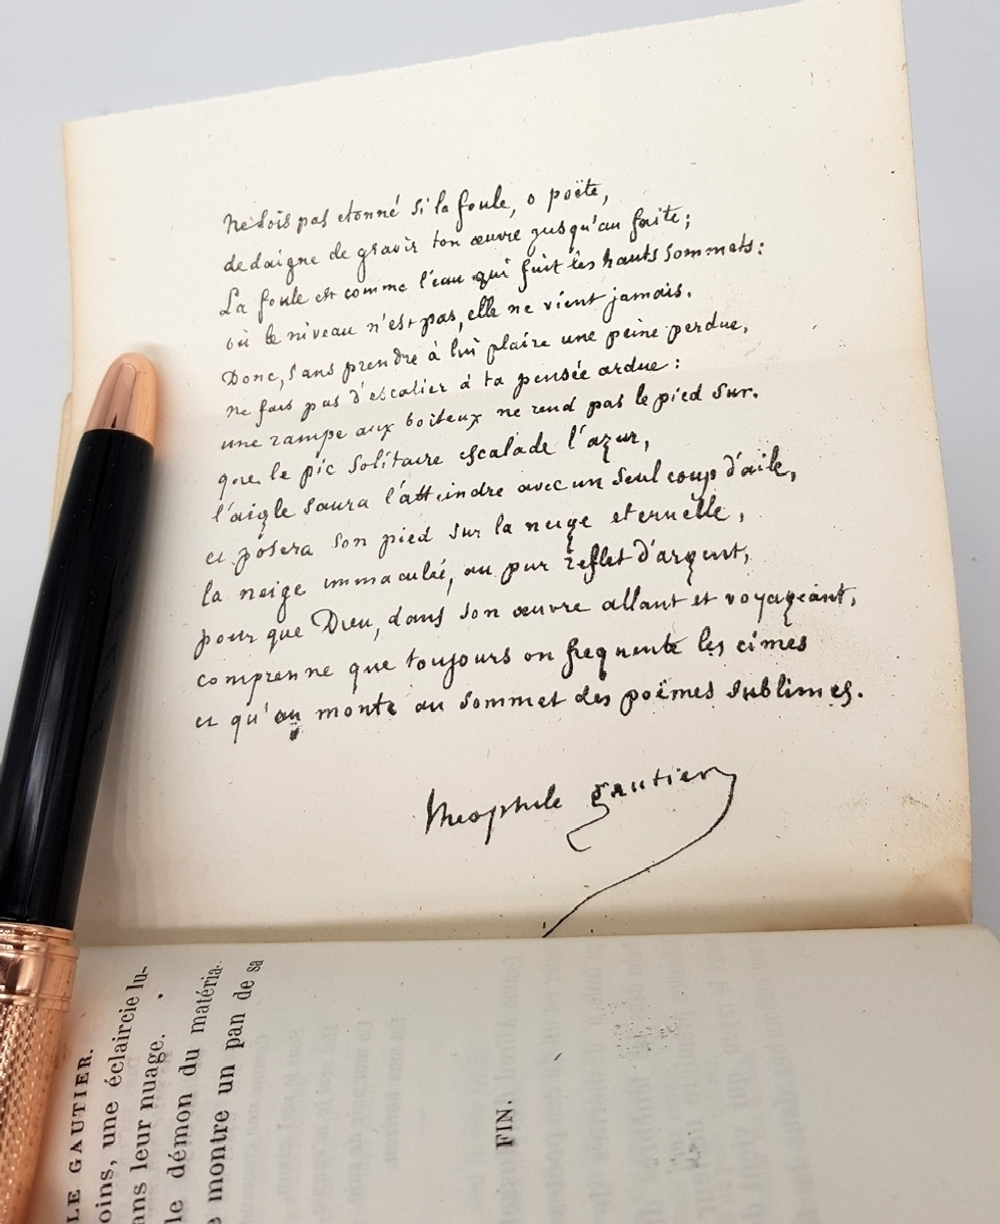 Ne sois pas etonné si la foule, o poëte,
dedaigne de gravir ton œuvre jusqu'au faite;
La foule est comme l'eau qui fuit les hauts sommets:
où le niveau n'est pas, elle ne vient jamais.
Donc, sans prendre à lui plaire une peine perdue,
ne fais pas d'escalier à ta pensée ardue:
une rampe aux boiteux ne rend pas le pied sur.
que le pic solitaire escalade l'azur,
l'aigle saura l'atteindre avec un seul coup d'aile,
et posera son pied sur la neige eternelle,
la neige immaculée, au pur reflet d'argent,
pour que Dieu, dans son œuvre allant et voyageant,
comprenne que toujours on frequente les cimes
et qu'on monte au sommet des poëmes sublimes.
Theophile Gautier
LE GAUTIER.
oins, une éclaircie lu-
ans leur nuage.
le démon du matéria-
e montre un pan de sa
FIN.